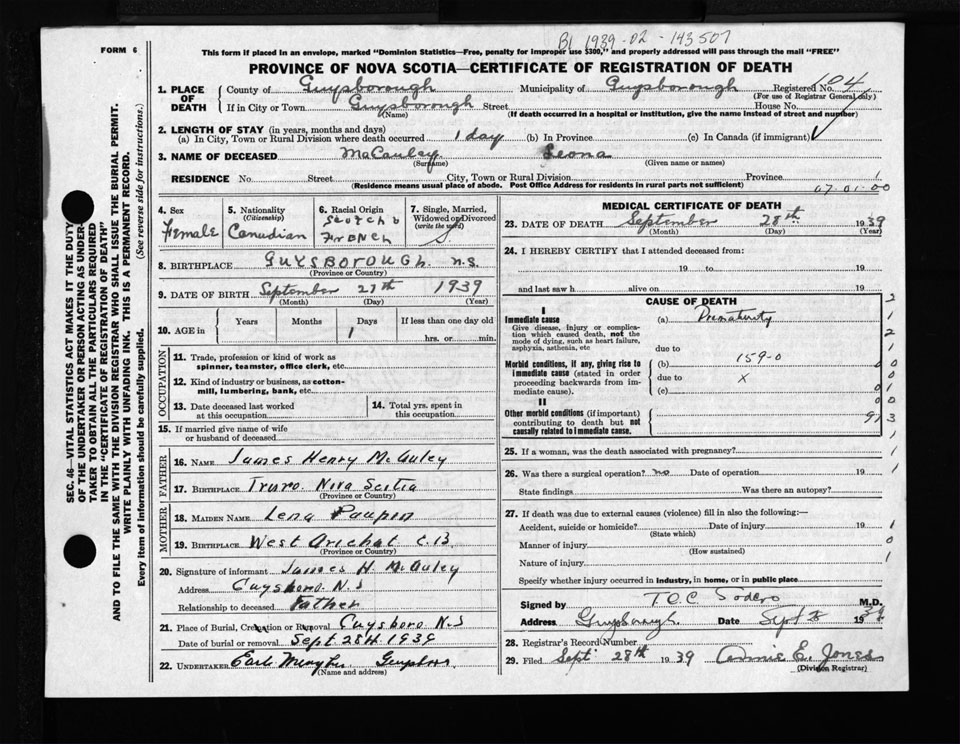 FORM 6
This form if placed in an envelope, marked "Dominion Statistics—Free, penalty for improper use $300," and properly addressed will pass through the mail "FREE"
B1 1939-02-143507
PROVINCE OF NOVA SCOTIA—CERTIFICATE OF REGISTRATION OF DEATH
1. PLACE OF DEATH County of Guysborough Municipality of Guysborough Registered No. 104
(For use of Registrar General only)
If in City or Town Guysborough Street House No.
(Name) (If death occurred in a hospital or institution, give the name instead of street and number)
2. LENGTH OF STAY (in years, months and days)
(a) In City, Town or Rural Division where death occurred 1 day (b) In Province (c) In Canada (if immigrant)
3. NAME OF DECEASED MaCauley Leona
(Surname) (Given name or names)
RESIDENCE No. Street City, Town or Rural Division Province
(Residence means usual place of abode. Post Office Address for residents in rural parts not sufficient)
07-01-00
4. Sex Female
5. Nationality (Citizenship) Canadian
6. Racial Origin Scotch & French
7. Single, Married, Widowed or Divorced (write the word) S
8. BIRTHPLACE GUYSBOROUGH. N.S.
(Province or Country)
9. DATE OF BIRTH September 27th 1939
(Month) (Day) (Year)
10. AGE in Years Months Days If less than one day old
1 hrs. or min.
OCCUPATION
11. Trade, profession or kind of work as spinner, teamster, office clerk, etc.
12. Kind of industry or business, as cotton-mill, lumbering, bank, etc.
13. Date deceased last worked at this occupation
14. Total yrs. spent in this occupation
15. If married give name of wife or husband of deceased
FATHER
16. NAME James Henry McAuley
17. BIRTHPLACE Truro Nova Scotia
(Province or Country)
MOTHER
18. MAIDEN NAME Lena
19. BIRTHPLACE West Arichat C.B.
(Province or Country)
20. Signature of informant James H McAuley
Address Guysboro N.S
Relationship to deceased Father
21. Place of Burial, Cremation or Removal Guysboro N.S
Date of burial or removal Sept. 28th 1939
22. UNDERTAKER Earl
(Name and address)
MEDICAL CERTIFICATE OF DEATH
23. DATE OF DEATH September 28th 1939
(Month) (Day) (Year)
24. I HEREBY CERTIFY that I attended deceased from:
19 to 19
and last saw h alive on 19
CAUSE OF DEATH
I
Immediate cause (a) Prematurity
Give disease, injury or complication which caused death, not the mode of dying, such as heart failure, asphyxia, asthenia, etc
due to
Morbid conditions, if any, giving rise to immediate cause (stated in order proceeding backwards from immediate cause).
(b) 159-0
due to x
(c)
II
Other morbid conditions (if important) contributing to death but not causally related to immediate cause.
25. If a woman, was the death associated with pregnancy?
26. Was there a surgical operation? no Date of operation 19
State findings Was there an autopsy?
27. If death was due to external causes (violence) fill in also the following:—
Accident, suicide or homicide? Date of injury 19
(State which)
Manner of injury
(How sustained)
Nature of injury
Specify whether injury occurred in industry, in home, or in public place
Signed by T.O.C. Sodero M.D.
Address Guysborough. Date Sept 19
28. Registrar's Record Number
29. Filed Sept 28th 1939 Annie E. Jones
(Division Registrar)
SEC. 46—VITAL STATISTICS ACT MAKES IT THE DUTY
OF THE UNDERTAKER OR PERSON ACTING AS UNDER-
TAKER TO OBTAIN ALL THE PARTICULARS REQUIRED
IN THE "CERTIFICATE OF REGISTRATION OF DEATH"
AND TO FILE THE SAME WITH THE DIVISION REGISTRAR WHO SHALL ISSUE THE BURIAL PERMIT.
WRITE PLAINLY WITH UNFADING INK. THIS IS A PERMANENT RECORD.
Every item of information should be carefully supplied. (See reverse side for instructions.)